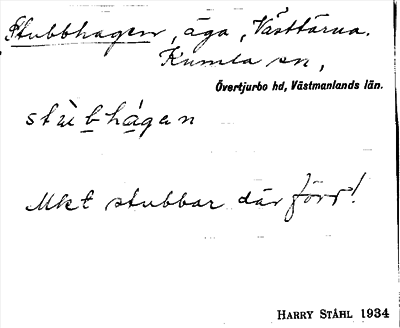 Stubbhagen, äga, Västtärna.
Kumla sn,
Övertjurbo hd, Västmanlands län.
stùbhágen
Mkt stubbar där förr!
HARRY STÅHL 1934